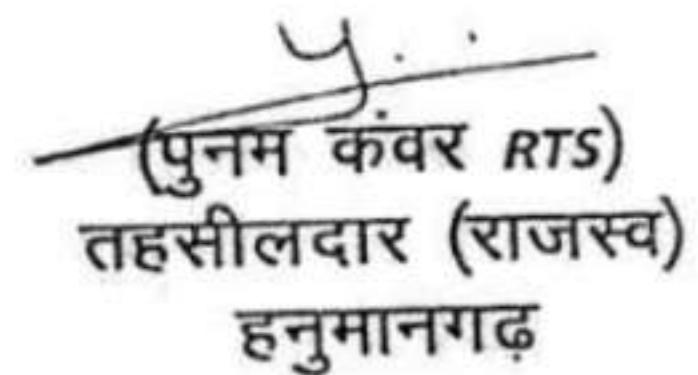 (पुनम कंवर RTS)
तहसीलदार (राजस्व)
हनुमानगढ़